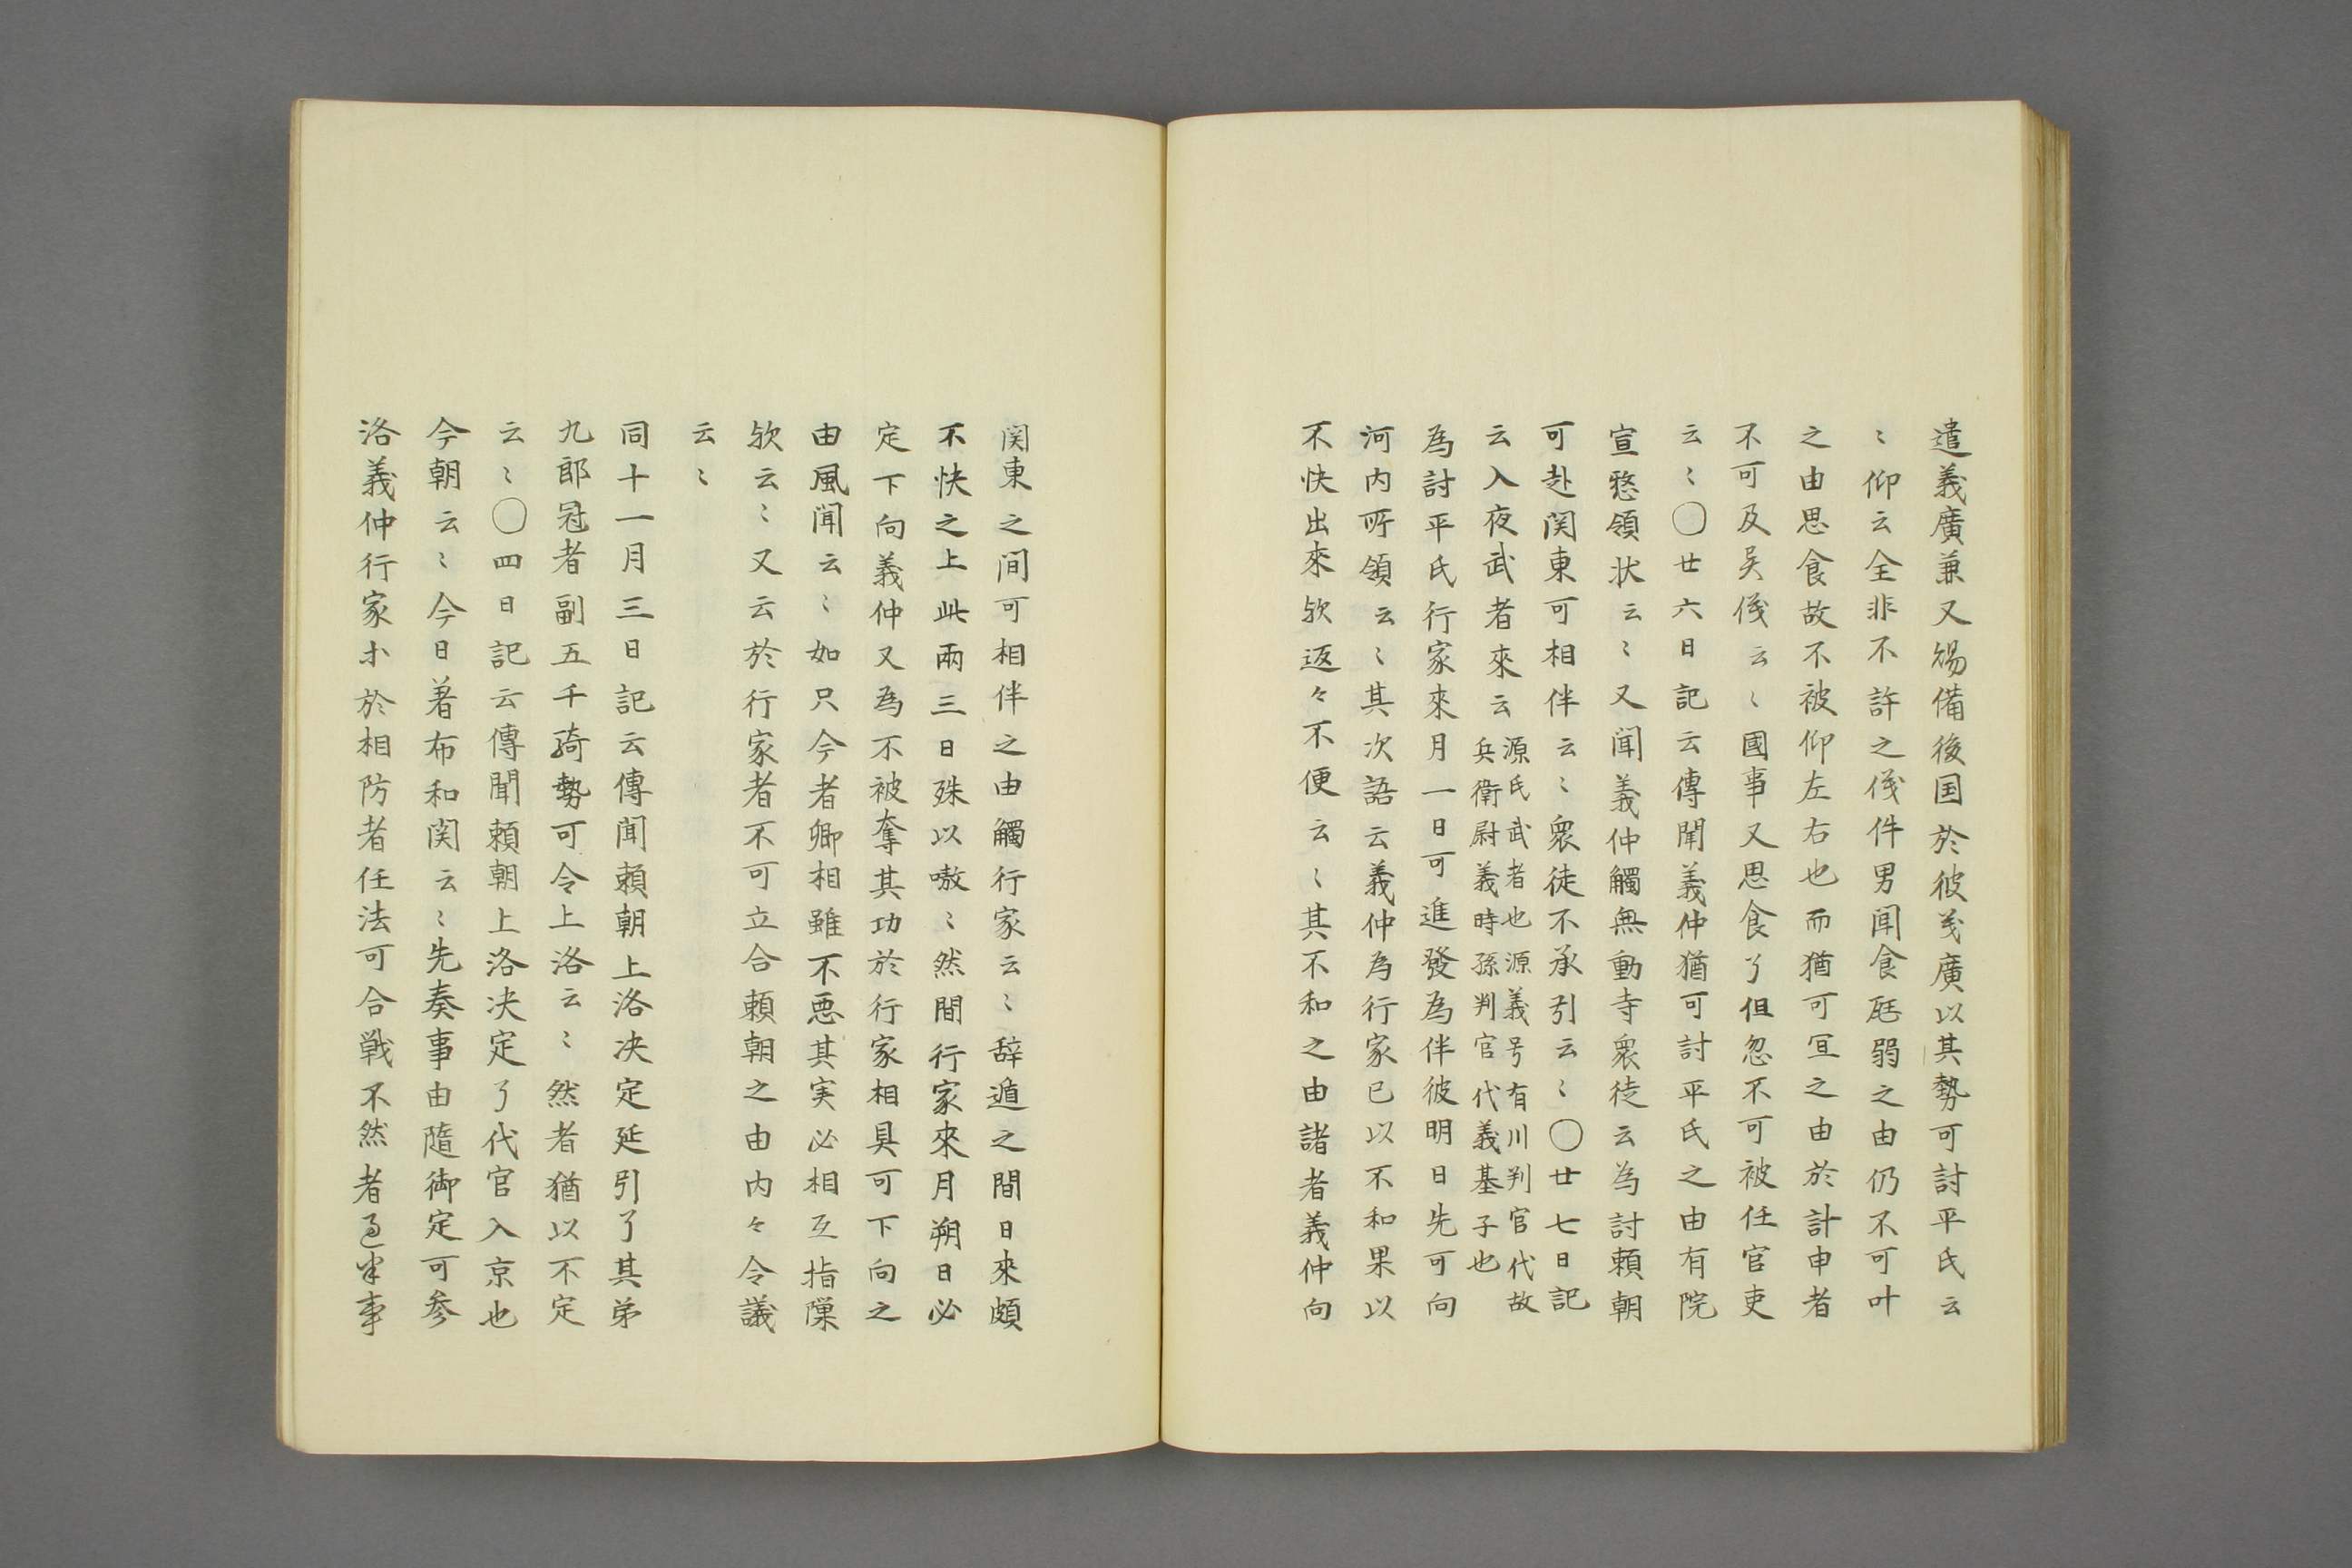 遣義廣兼又賜備後国於彼義廣以其勢可討平氏云
〻仰云全非不許之儀件男聞食尫弱之由仍不可叶
之由思食故不被仰左右也而猶可宜之由於計申者
不可及異儀云〻國事又思食了但忽不可被任官吏
云〻〇廿六日記云傳聞義仲猶可討平氏之由有院
宣憖領状云〻又聞義仲觸無動寺衆徒云為討頼朝
可赴関東可相伴云〻衆徒不承引云〻〇廿七日記
云入夜武者來云源氏武者也源義号有川判官代故
兵衛尉義時孫判官代義基子也
為討平氏行家來月一日可進發為伴彼明日先可向
河内所領云〻其次語云義仲為行家已以不和果以
不快出來欤返々不便云〻其不和之由諸者義仲向
関東之間可相伴之由觸行家云〻辞遁之間日來頗
不快之上此兩三日殊以嗷〻然間行家來月朔日必
定下向義仲又為不被奪其功於行家相具可下向之
由風聞云〻如只今者卿相雖不悪其実必相互指隟
欤云〻又云於行家者不可立合頼朝之由内々令議
云〻
同十一月三日記云傳聞頼朝上洛決定延引了其弟
九郎冠者副五千騎勢可令上洛云〻然者猶以不定
云〻〇四日記云傳聞頼朝上洛決定了代官入京也
今朝云〻今日着布和関云〻先奏事由隨御定可参
洛義仲行家ホ於相防者任法可合戦不然者事